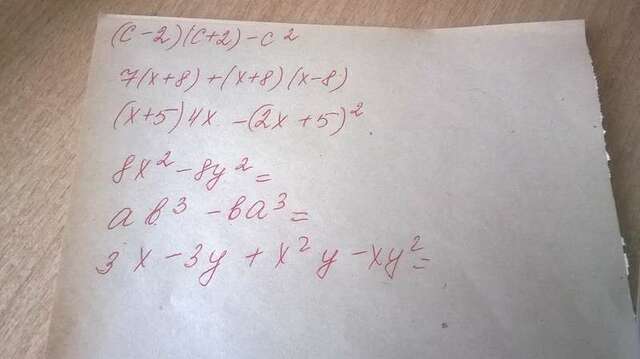 (c-2)(c+2)-c²
7(x+8)+(x+8)(x-8)
(x+5)4x-(2x+5)²
8x²-8y²=
ab³-ba³=
3x-3y+x²y-xy²=